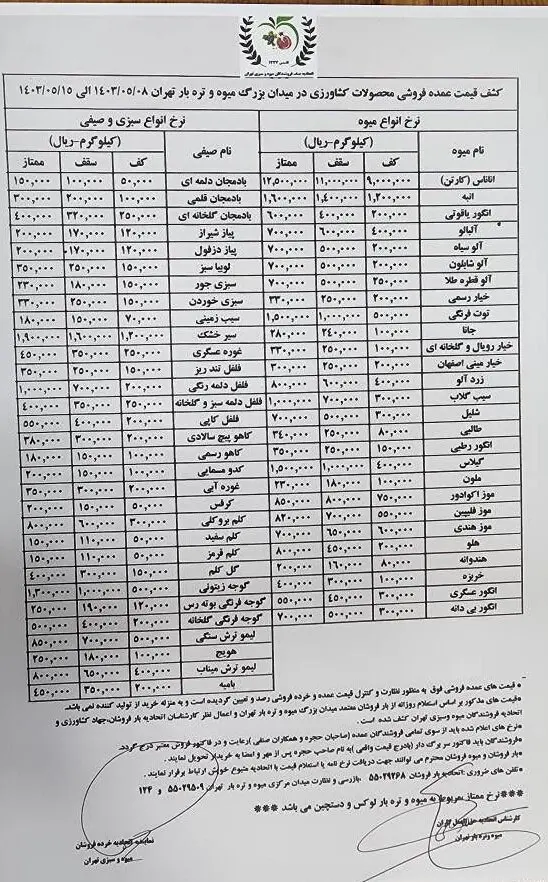 ۱۳۳۲
اتحادیه صنف فروشندگان میوه و سبزی تهران
کشف قیمت عمده فروشی محصولات کشاورزی در میدان بزرگ میوه و تره بار تهران ۱۴۰۳/۰۵/۰۸ الی ۱۴۰۳/۰۵/۱۵
نرخ انواع میوه
نام میوه (کیلوگرم-ریال)
کف سقف ممتاز
اناناس (کارتن) ۹,۰۰۰,۰۰۰ ۱۱,۰۰۰,۰۰۰ ۱۲,۵۰۰,۰۰۰
انبه ۱,۲۰۰,۰۰۰ ۱,۴۰۰,۰۰۰ ۱,۶۰۰,۰۰۰
انگور یاقوتی ۲۰۰,۰۰۰ ۴۰۰,۰۰۰ ۶۰۰,۰۰۰
آلبالو ۴۰۰,۰۰۰ ۶۰۰,۰۰۰ ۷۰۰,۰۰۰
آلو سیاه ۲۰۰,۰۰۰ ۵۰۰,۰۰۰ ۷۰۰,۰۰۰
آلو شابلون ۲۰۰,۰۰۰ ۵۰۰,۰۰۰ ۷۰۰,۰۰۰
آلو قطره طلا ۲۵۰,۰۰۰ ۵۰۰,۰۰۰ ۷۰۰,۰۰۰
خیار رسمی ۲۰۰,۰۰۰ ۲۵۰,۰۰۰ ۳۳۰,۰۰۰
توت فرنگی ۵۰۰,۰۰۰ ۱,۰۰۰,۰۰۰ ۱,۵۰۰,۰۰۰
جانا ۱۰۰,۰۰۰ ۲۴۰,۰۰۰ ۲۸۰,۰۰۰
خیار رویال و گلخانه ای ۱۰۰,۰۰۰ ۲۵۰,۰۰۰ ۳۳۰,۰۰۰
خیار مینی اصفهان ۲۰۰,۰۰۰ ۲۵۰,۰۰۰ ۳۰۰,۰۰۰
زرد آلو ۴۰۰,۰۰۰ ۶۰۰,۰۰۰ ۸۰۰,۰۰۰
سیب گلاب ۳۰۰,۰۰۰ ۷۰۰,۰۰۰ ۱,۰۰۰,۰۰۰
شلیل ۳۰۰,۰۰۰ ۵۰۰,۰۰۰ ۷۰۰,۰۰۰
طالبی ۸۰,۰۰۰ ۲۵۰,۰۰۰ ۳۴۰,۰۰۰
انگور رطبی ۱۵۰,۰۰۰ ۲۵۰,۰۰۰ ۳۵۰,۰۰۰
گیلاس ۴۰۰,۰۰۰ ۱,۰۰۰,۰۰۰ ۱,۵۰۰,۰۰۰
ملون ۱۰۰,۰۰۰ ۱۸۰,۰۰۰ ۲۳۰,۰۰۰
موز اکوادور ۷۵۰,۰۰۰ ۸۰۰,۰۰۰ ۸۵۰,۰۰۰
موز فلیپین ۵۵۰,۰۰۰ ۷۰۰,۰۰۰ ۸۲۰,۰۰۰
موز هندی ۶۰۰,۰۰۰ ۶۵۰,۰۰۰ ۷۰۰,۰۰۰
هلو ۲۰۰,۰۰۰ ۴۵۰,۰۰۰ ۸۰۰,۰۰۰
هندوانه ۸۰,۰۰۰ ۱۶۰,۰۰۰ ۲۰۰,۰۰۰
خربزه ۱۰۰,۰۰۰ ۳۰۰,۰۰۰ ۴۰۰,۰۰۰
انگور عسکری ۳۰۰,۰۰۰ ۴۵۰,۰۰۰ ۵۵۰,۰۰۰
انگور بی دانه ۳۰۰,۰۰۰ ۵۰۰,۰۰۰ ۷۰۰,۰۰۰
نرخ انواع سبزی و صیفی
نام صیفی (کیلوگرم-ریال)
کف سقف ممتاز
بادمجان دلمه ای ۵۰,۰۰۰ ۱۰۰,۰۰۰ ۱۵۰,۰۰۰
بادمجان قلمی ۱۰۰,۰۰۰ ۲۰۰,۰۰۰ ۳۰۰,۰۰۰
بادمجان گلخانه ای ۲۵۰,۰۰۰ ۳۲۰,۰۰۰ ۴۰۰,۰۰۰
پیاز شیراز ۱۲۰,۰۰۰ ۱۷۰,۰۰۰ ۲۰۰,۰۰۰
پیاز دزفول ۱۲۰,۰۰۰ ۱۷۰,۰۰۰ ۲۰۰,۰۰۰
لوبیا سبز ۱۵۰,۰۰۰ ۲۵۰,۰۰۰ ۳۵۰,۰۰۰
سبزی جور ۱۵۰,۰۰۰ ۱۸۰,۰۰۰ ۲۳۰,۰۰۰
سبزی خوردن ۱۵۰,۰۰۰ ۲۵۰,۰۰۰ ۳۳۰,۰۰۰
سیب زمینی ۷۰,۰۰۰ ۱۵۰,۰۰۰ ۱۸۰,۰۰۰
سیر خشک ۱,۲۰۰,۰۰۰ ۱,۶۰۰,۰۰۰ ۱,۹۰۰,۰۰۰
غوره عسگری ۲۵۰,۰۰۰ ۳۵۰,۰۰۰ ۴۵۰,۰۰۰
فلفل تند ریز ۱۵۰,۰۰۰ ۲۵۰,۰۰۰ ۳۵۰,۰۰۰
فلفل دلمه رنگی ۲۰۰,۰۰۰ ۷۰۰,۰۰۰ ۱,۰۰۰,۰۰۰
فلفل دلمه سبز و گلخانه ۲۵۰,۰۰۰ ۳۵۰,۰۰۰ ۴۰۰,۰۰۰
فلفل کاپی ۲۰۰,۰۰۰ ۴۰۰,۰۰۰ ۵۵۰,۰۰۰
کاهو پیچ سالادی ۲۰۰,۰۰۰ ۳۰۰,۰۰۰ ۳۸۰,۰۰۰
کاهو رسمی ۱۰۰,۰۰۰ ۱۵۰,۰۰۰ ۱۸۰,۰۰۰
کدو مسمایی ۱۰۰,۰۰۰ ۱۵۰,۰۰۰ ۲۰۰,۰۰۰
غوره آبی ۲۰۰,۰۰۰ ۳۰۰,۰۰۰ ۳۵۰,۰۰۰
کرفس ۵۰,۰۰۰ ۱۵۰,۰۰۰ ۲۰۰,۰۰۰
کلم بروکلی ۳۰۰,۰۰۰ ۶۰۰,۰۰۰ ۸۰۰,۰۰۰
کلم سفید ۵۰,۰۰۰ ۱۱۰,۰۰۰ ۱۵۰,۰۰۰
کلم قرمز ۵۰,۰۰۰ ۱۱۰,۰۰۰ ۱۵۰,۰۰۰
گل کلم ۱۵۰,۰۰۰ ۳۰۰,۰۰۰ ۴۰۰,۰۰۰
گوجه زیتونی ۵۰۰,۰۰۰ ۱,۰۰۰,۰۰۰ ۱,۳۰۰,۰۰۰
گوجه فرنگی بوته رس ۱۲۰,۰۰۰ ۱۹۰,۰۰۰ ۲۵۰,۰۰۰
گوجه فرنگی گلخانه ۲۰۰,۰۰۰ ۴۰۰,۰۰۰ ۵۰۰,۰۰۰
لیمو ترش سنگی ۵۰۰,۰۰۰ ۷۰۰,۰۰۰ ۸۵۰,۰۰۰
هویج ۱۰۰,۰۰۰ ۱۸۰,۰۰۰ ۲۵۰,۰۰۰
لیمو ترش میناب ۴۰۰,۰۰۰ ۶۵۰,۰۰۰ ۸۰۰,۰۰۰
بامیه ۲۰۰,۰۰۰ ۳۵۰,۰۰۰ ۴۵۰,۰۰۰
* قیمت های عمده فروشی فوق به منظور نظارت و کنترل قیمت عمده و خرده فروشی رصد و تعیین گردیده است و به منزله خرید از تولید کننده نمی باشد.
* قیمت های مذکور بر اساس استعلام روزانه از بار فروشان معتمد میدان بزرگ میوه و تره بار تهران و اعمال نظر کارشناسان اتحادیه بار فروشان،جهاد کشاورزی و
اتحادیه فروشندگان میوه وسبزی تهران کشف شده است .
* نرخ های اعلام شده باید از سوی تمامی فروشندگان عمده (صاحبان حجره و همکاران صنفی) رعایت و در فاکتور فروش معتبر درج گردد.
* فروشندگان باید فاکتور سربرگ دار (بادرج قیمت واقعی) به نام صاحب حجره پس از مهر و امضا به خریدار تحویل نمایند .
* بارفروشان و میوه فروشان محترم می توانند جهت دریافت نرخ نامه یا استعلام قیمت با اتحادیه متبوع خویش ارتباط برقرار نمایند .
* تلفن های ضروری : اتحادیه بار فروشان ۵۵۰۲۹۲۶۸ .بازرسی و نظارت میدان مرکزی میوه و تره بار تهران ۵۵۰۲۹۵۰۹ و ۱۲۴
***نرخ ممتاز مربوط به میوه و تره بار لوکس و دستچین می باشد ***
کارشناس اتحادیه
میوه وتره بار تهران
نماینده اتحادیه خرده فروشان
میوه و سبزی تهران